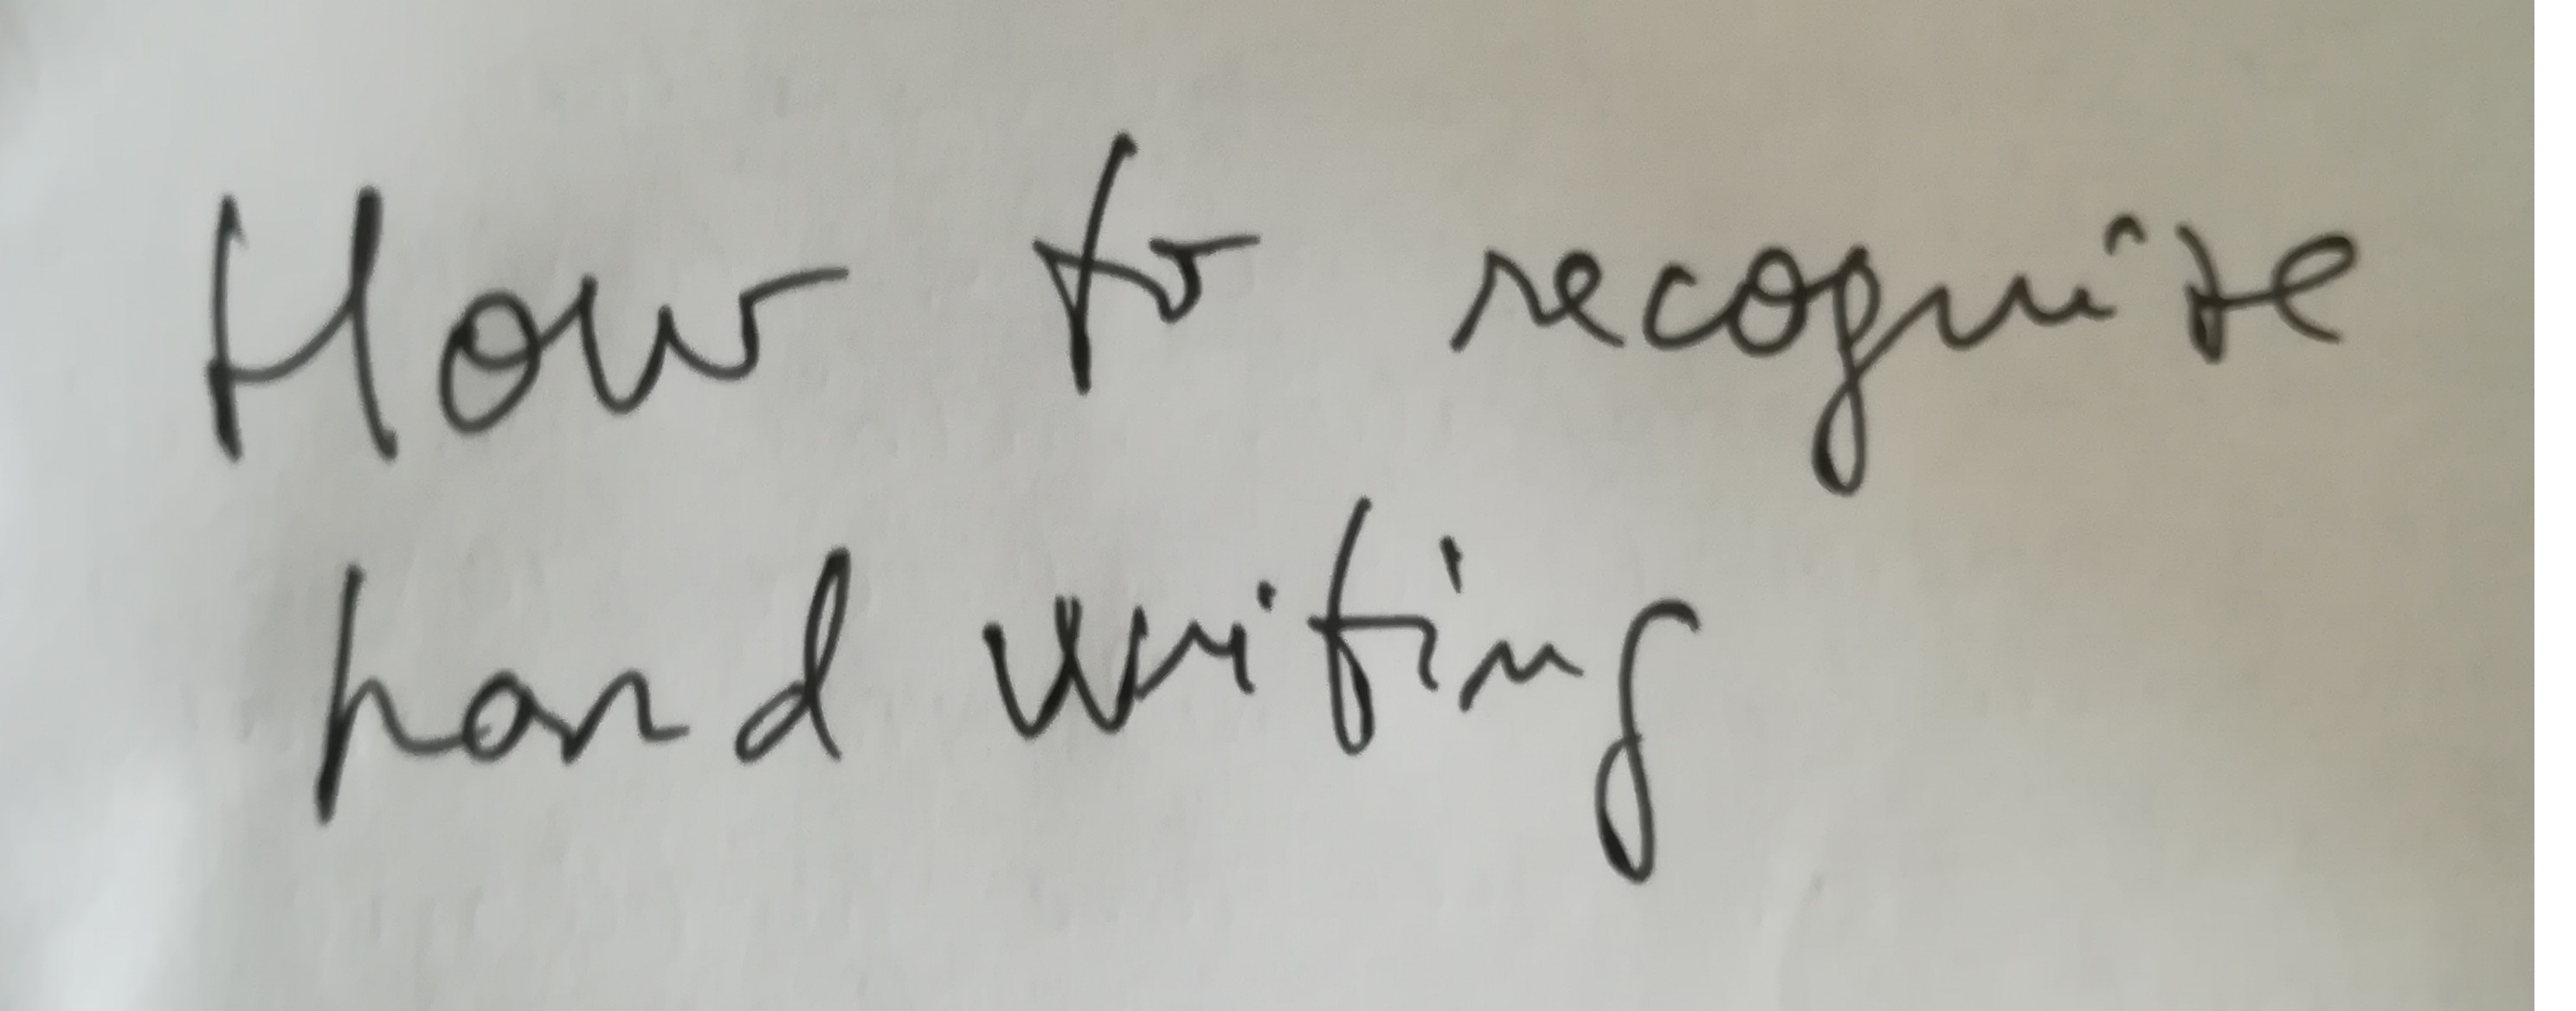 How to recognize
hand writing